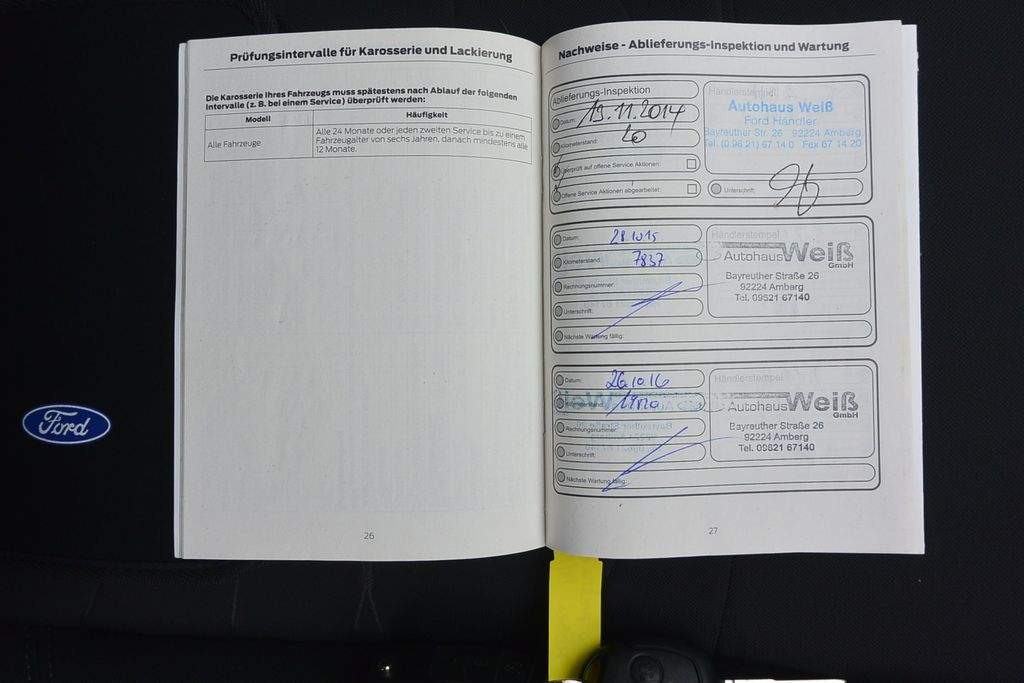 Prüfungsintervalle für Karosserie und Lackierung
Die Karosserie Ihres Fahrzeugs muss spätestens nach Ablauf der folgenden
Intervalle (z. B. bei einem Service) überprüft werden:
Modell Häufigkeit
Alle Fahrzeuge
Alle 24 Monate oder jeden zweiten Service bis zu einem
Fahrzeugalter von sechs Jahren, danach mindestens alle
12 Monate.
26
Ford
Nachweise - Ablieferungs-Inspektion und Wartung
Ablieferungs-Inspektion
Datum: 19.11.2014
Kilometerstand:
Überprüft auf offene Service Aktionen:
Offene Service Aktionen abgearbeitet:
Händlerstempel
Autohaus Weiß
Ford Händler
Bayreuther Str. 26 92224 Amberg
Tel. (0 96 21) 67 14 0 Fax 67 14 20
Unterschrift:
Datum: 28.10.15
Kilometerstand: 7837
Rechnungsnummer:
Unterschrift:
Nächste Wartung fällig:
Händlerstempel
Autohaus Weiß
GmbH
Bayreuther Straße 26
92224 Amberg
Tel. 09621 67140
Datum: 26.10.16
Rechnungsnummer:
Unterschrift:
Nächste Wartung fällig:
Händlerstempel
Autohaus Weiß
GmbH
Bayreuther Straße 26
92224 Amberg
Tel. 09621 67140
27